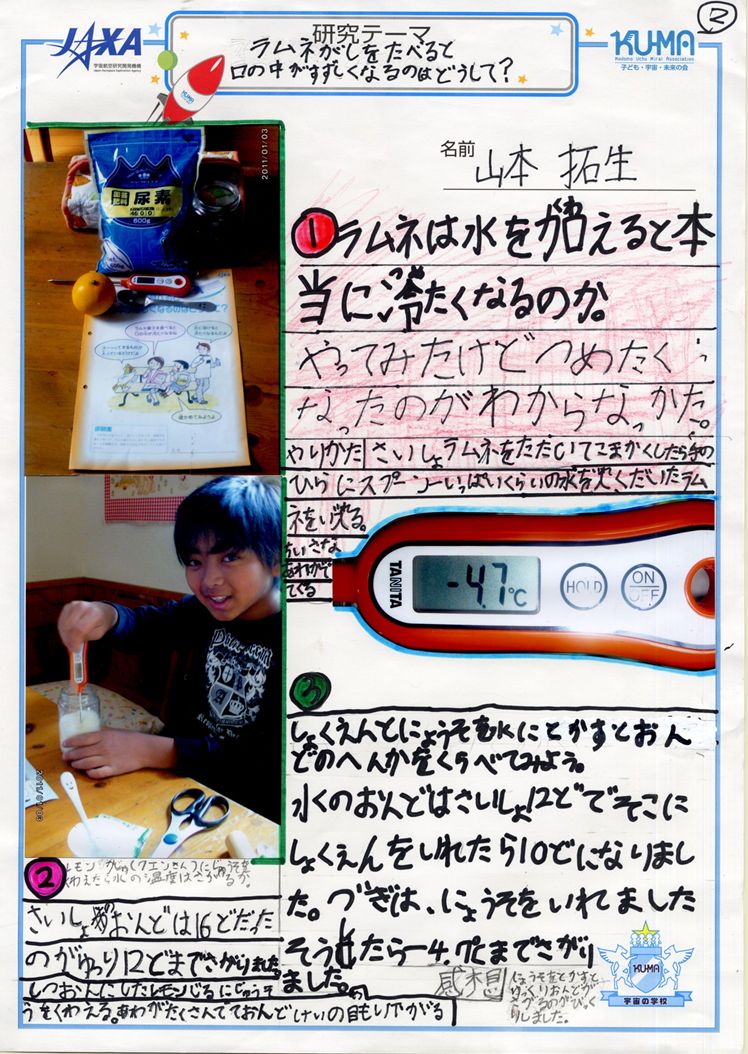 2
JAXA
宇宙航空研究開発機構
Japan Aerospace Exploration Agency
研究テーマ
ラムネがしをたべると
口の中がすずしくなるのはどうして?
KU-MA
Kodomo Uchu Mirai Association
子ども・宇宙・未来の会
名前 山本 拓生
2011/01/03
園芸肥料
尿素
600g
① ラムネは水を加えると本
当に冷たくなるのか。
やってみたけどつめたく
なったのがわからなっかた。
やりかた さいしょラムネをただいてこまかくしたら手の
ひらにスプーン一ぱいくらいの水を
くだいたラム
ネを
る。
ちいさな
あわがで
てくる
TANITA
-4.7℃
HOLD
ON
OFF
③
しょくえんとにょうそを水にとかすとおん
どのへんかをくらべてみよう。
水くのおんどはさいしょ12どでそこに
しょくえんをいれたら10どになりまし
た。づぎは、にょうそをいれてました
そうしたら-4.7℃までさがり
ました。
2011/01/03
② レモン
(クエンさん)に
を
くわえたら水の温度はさがるか。
さいしょ
おんどは16どだった
のがゆっり12どまでさがりました。
しつおんにしたレモンじるにじゅうそ
うをくわえる。あわがたくさんでておんどけいの目もりがさがる
感想
にょうそをとかすと
ゆっくりおんどが
さがるのがびっく
りしました。
KUMA
宇宙の学校